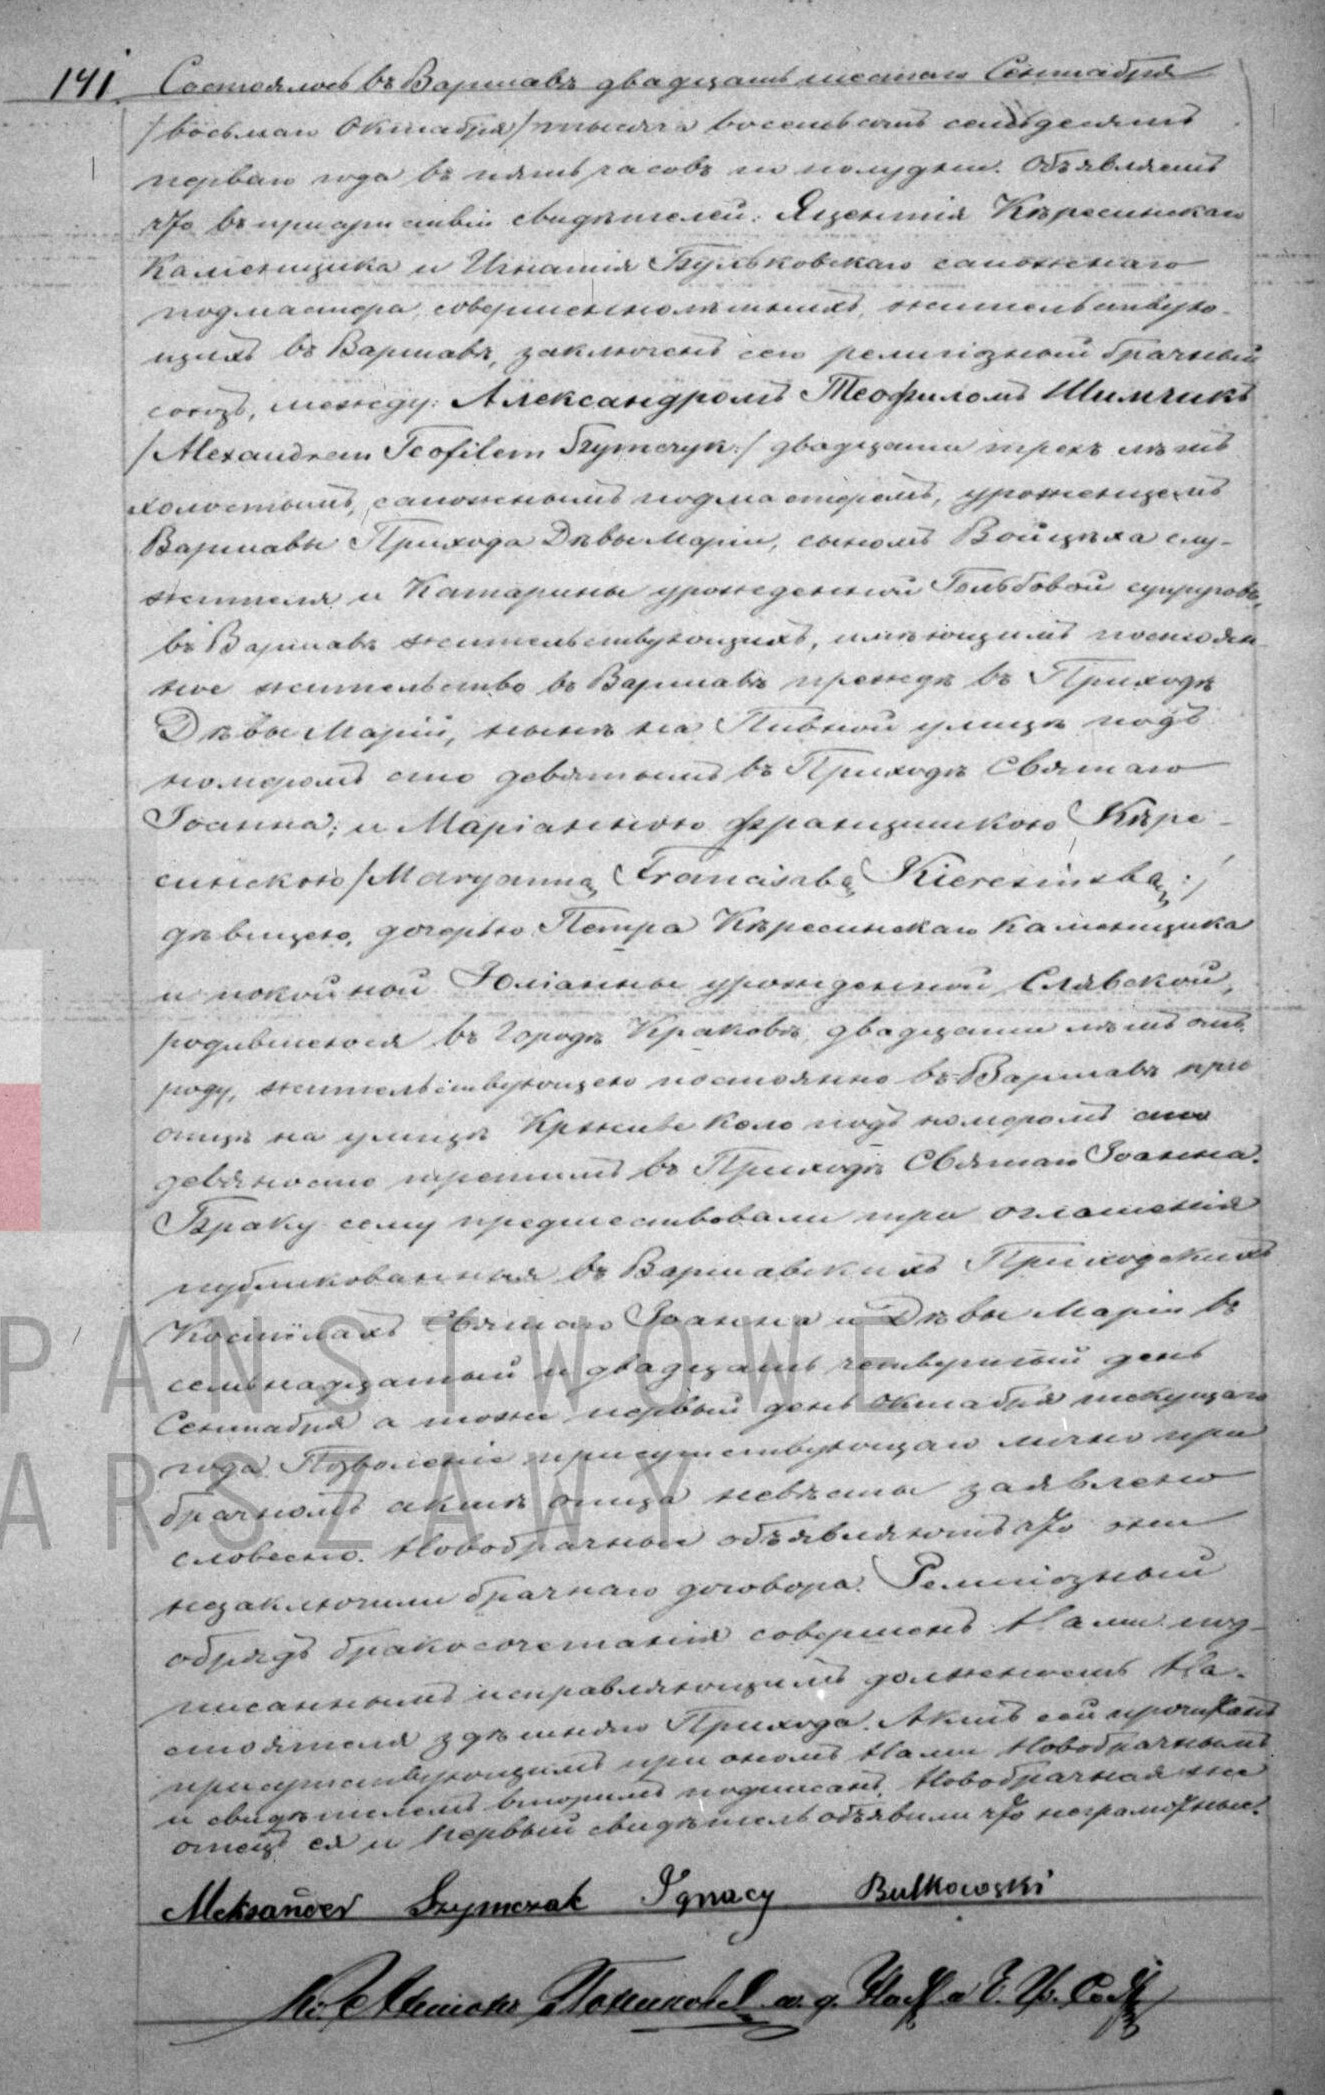 141 Состоялось въ Варшавѣ двадцать шестаго Сентября
/восьмаго Октября/ тысяча восемьсотъ семьдесятъ
перваго года въ пять часовъ по полудни. Объявляемъ
что въ присутствіи свидѣтелей: Яцентія Кѣресинскаго
Каменщика и Игнатія Бульковскаго сапожнаго
подмастера, совершеннолѣтнихъ, жительствую-
щихъ въ Варшавѣ, заключенъ сего религіозный брачный
союзъ, между: Александромъ Теофиломъ Шимчикъ
/Alexandrem Teofilem Szymczyk:/ двадцати трехъ лѣтъ
холостымъ, сапожнымъ подмастеромъ, уроженцемъ
Варшавы Прихода Дѣвы Маріи, сыномъ Войцѣха слу-
жителя и Катарины урожденной Гольбовой супруговъ,
въ Варшавѣ жительствующихъ, имѣющимъ постоян-
ное жительство въ Варшавѣ прежде въ Приходѣ
Дѣвы Маріи, нынѣ на Пивной улицѣ подъ
номеромъ сто девятымъ въ Приходѣ Святаго
Іоанна; и Маріанною Францишкою Кѣре-
синскою /Maryanną Franciszką Kieresinską:/
дѣвицею, дочерью Петра Кѣресинскаго Каменщика
и покойной Юліанны урожденной Слявской,
родившеюся въ городѣ Краковѣ, двадцати лѣтъ отъ
роду, жительствующею постоянно въ Варшавѣ при
отцѣ на улицѣ Крживе коло подъ номеромъ сто
девяносто третимъ въ Приходѣ Святаго Іоанна.
Браку сему предшествовали три оглашенія
публикованныя въ Варшавскихъ Приходскихъ
Костёлахъ Святаго Іоанна и Дѣвы Маріи въ
семьнадцатый и двадцать четвертый день
Сентября а тоже первый день Октября текущаго
года. Позволеніе присутствующаго лично при
брачномъ актѣ отца невѣсты заявлено
словесно. Новобрачные объявляютъ что они
незаключили брачнаго договора. Религіозный
обрядъ бракосочетанія совершенъ Нами под-
писаннымъ исправляющимъ должность На-
стоятеля здѣшняго Прихода. Актъ сей прочитанъ
присутствующимъ при ономъ Нами Новобрачнымъ
и свидѣтелемъ вторымъ подписанъ. Новобрачная же
отецъ ея и первый свидѣтель объявили что неграмотные.
Aleksander Szymczak Ignacy Bulkowski
Кс. Антонъ
PAŃSTWOWE
ARSZAWY